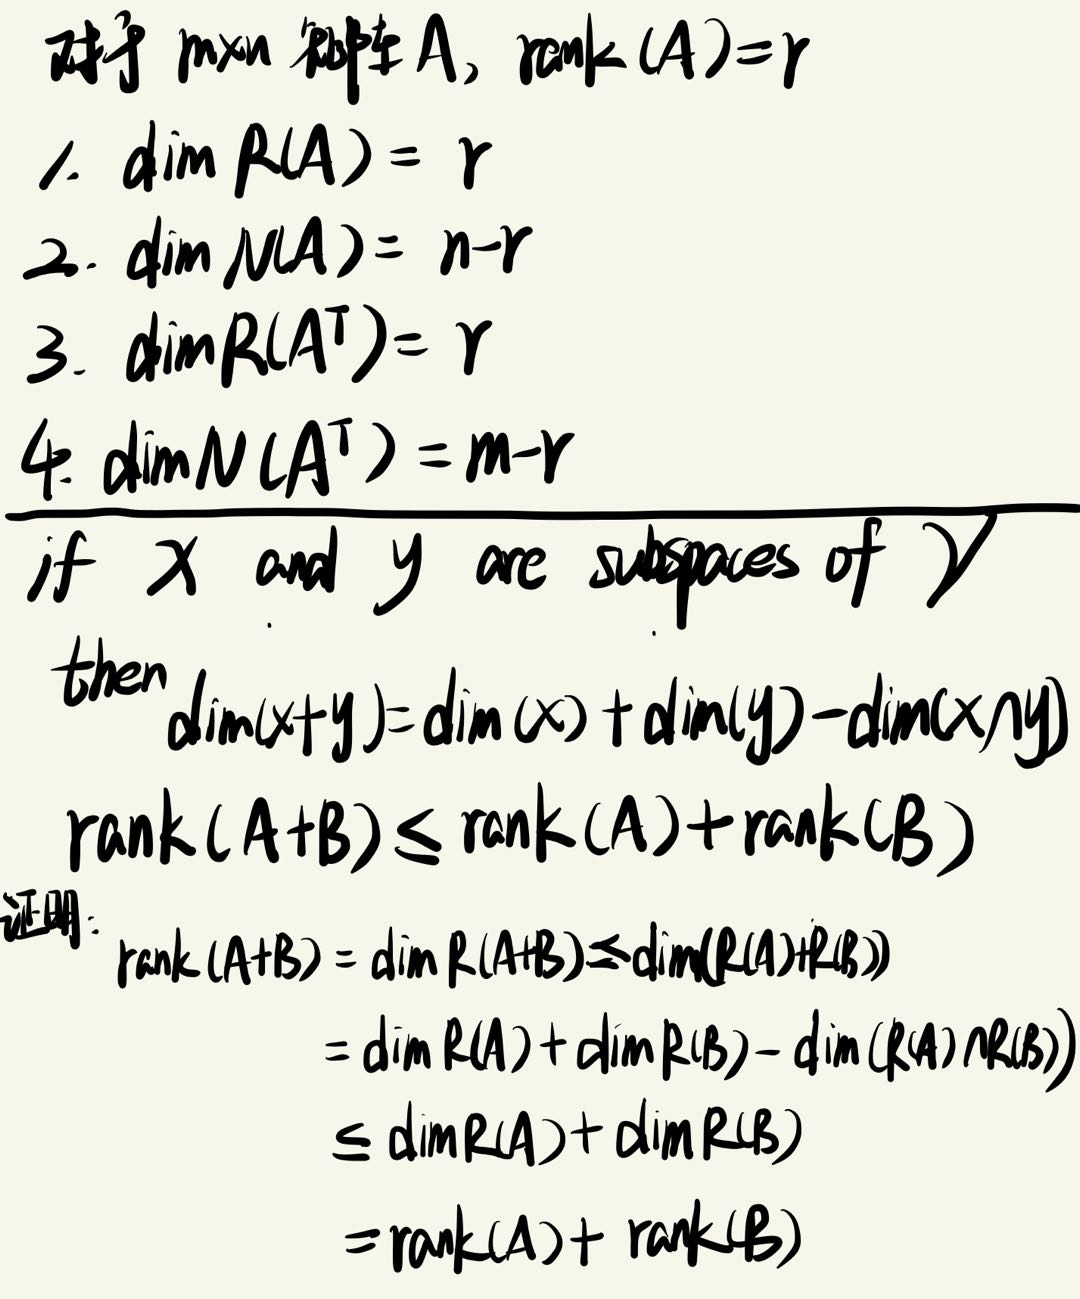 对于 m×n 矩阵 A, rank(A)=r
1. dim R(A) = r
2. dim N(A) = n-r
3. dim R(Aᵀ) = r
4. dim N(Aᵀ) = m-r
if X and y are subspaces of V
then dim(x+y)=dim(x)+dim(y)-dim(x∩y)
rank(A+B) ≤ rank(A)+rank(B)
证明:
rank(A+B) = dim R(A+B) ≤ dim(R(A)+R(B))
= dim R(A) + dim R(B) - dim(R(A)∩R(B))
≤ dim R(A) + dim R(B)
= rank(A) + rank(B)